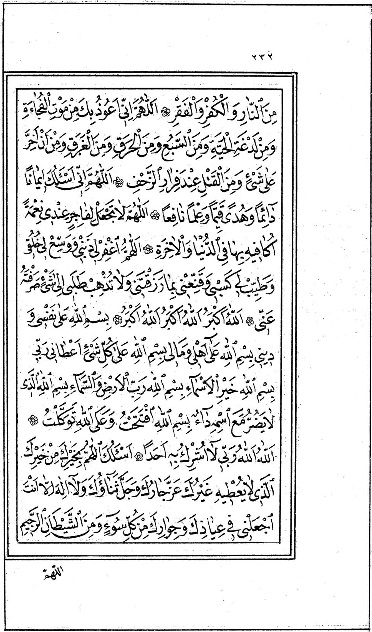 ٢٣٢
مِنَ النَّارِ وَالْكُفْرِ وَالْفَقْرِ ۞ اَللّٰهُمَّ اِنّٖى اَعُوذُ بِكَ مِنْ مَوْتِ الْفُجَاءَةِ
وَمِنْ لَدْغَةِ الْحَيَّةِ وَمِنَ السَّبُعِ وَمِنَ الْحَرَقِ وَمِنَ الْغَرَقِ وَمِنْ اَنْ اَخِرَّ
عَلٰى شَىْءٍ وَمِنَ الْقَتْلِ عِنْدَ فِرَارِ الزَّحْفِ ۞ اَللّٰهُمَّ اِنّٖى اَسْئَلُكَ اٖيمَانًا
دَائِمًا وَهُدًى قَيِّمًا وَعِلْمًا نَافِعًا ۞ اَللّٰهُمَّ لَا تَجْعَلْ لِفَاجِرٍ عِنْدٖى نِعْمَةً
اُكَافٖيهِ بِهَا فِى الدُّنْيَا وَالْاٰخِرَةِ ۞ اَللّٰهُمَّ اغْفِرْ لٖى ذَنْبٖى وَوَسِّعْ لٖى خُلُقٖى
وَطَيِّبْ لٖى كَسْبٖى وَقَنِّعْنٖى بِمَا رَزَقْتَنٖى وَلَا تُذْهِبْ طَلَبٖى اِلٰى شَىْءٍ صَرَفْتَهُ
عَنّٖى ۞ اَللّٰهُ اَكْبَرُ اَللّٰهُ اَكْبَرُ اَللّٰهُ اَكْبَرُ ۞ بِسْمِ اللّٰهِ عَلٰى نَفْسٖى وَ
دٖينٖى بِسْمِ اللّٰهِ عَلٰى اَهْلٖى وَمَالٖى بِسْمِ اللّٰهِ عَلٰى كُلِّ شَىْءٍ اَعْطَانٖى رَبّٖى
بِسْمِ اللّٰهِ خَيْرِ الْاَسْمَاءِ بِسْمِ اللّٰهِ رَبِّ الْاَرْضِ وَالسَّمَاءِ بِسْمِ اللّٰهِ الَّذٖى
لَا يَضُرُّ مَعَ اسْمِهٖ دَاءٌ بِسْمِ اللّٰهِ افْتَتَحْتُ وَعَلَى اللّٰهِ تَوَكَّلْتُ ۞
اَللّٰهُ اَللّٰهُ رَبّٖى لَا اُشْرِكُ بِهٖ اَحَدًا ۞ اَسْئَلُكَ اللّٰهُمَّ بِخَيْرِكَ مِنْ خَيْرِكَ
الَّذٖى لَا يُعْطٖيهِ غَيْرُكَ عَزَّ جَارُكَ وَجَلَّ ثَنَاؤُكَ وَلَا اِلٰهَ اِلَّا اَنْتَ
اجْعَلْنٖى فٖى عِيَاذِكَ وَجِوَارِكَ مِنْ كُلِّ سُوءٍ وَمِنَ الشَّيْطَانِ الرَّجٖيمِ
اللّٰهمّ